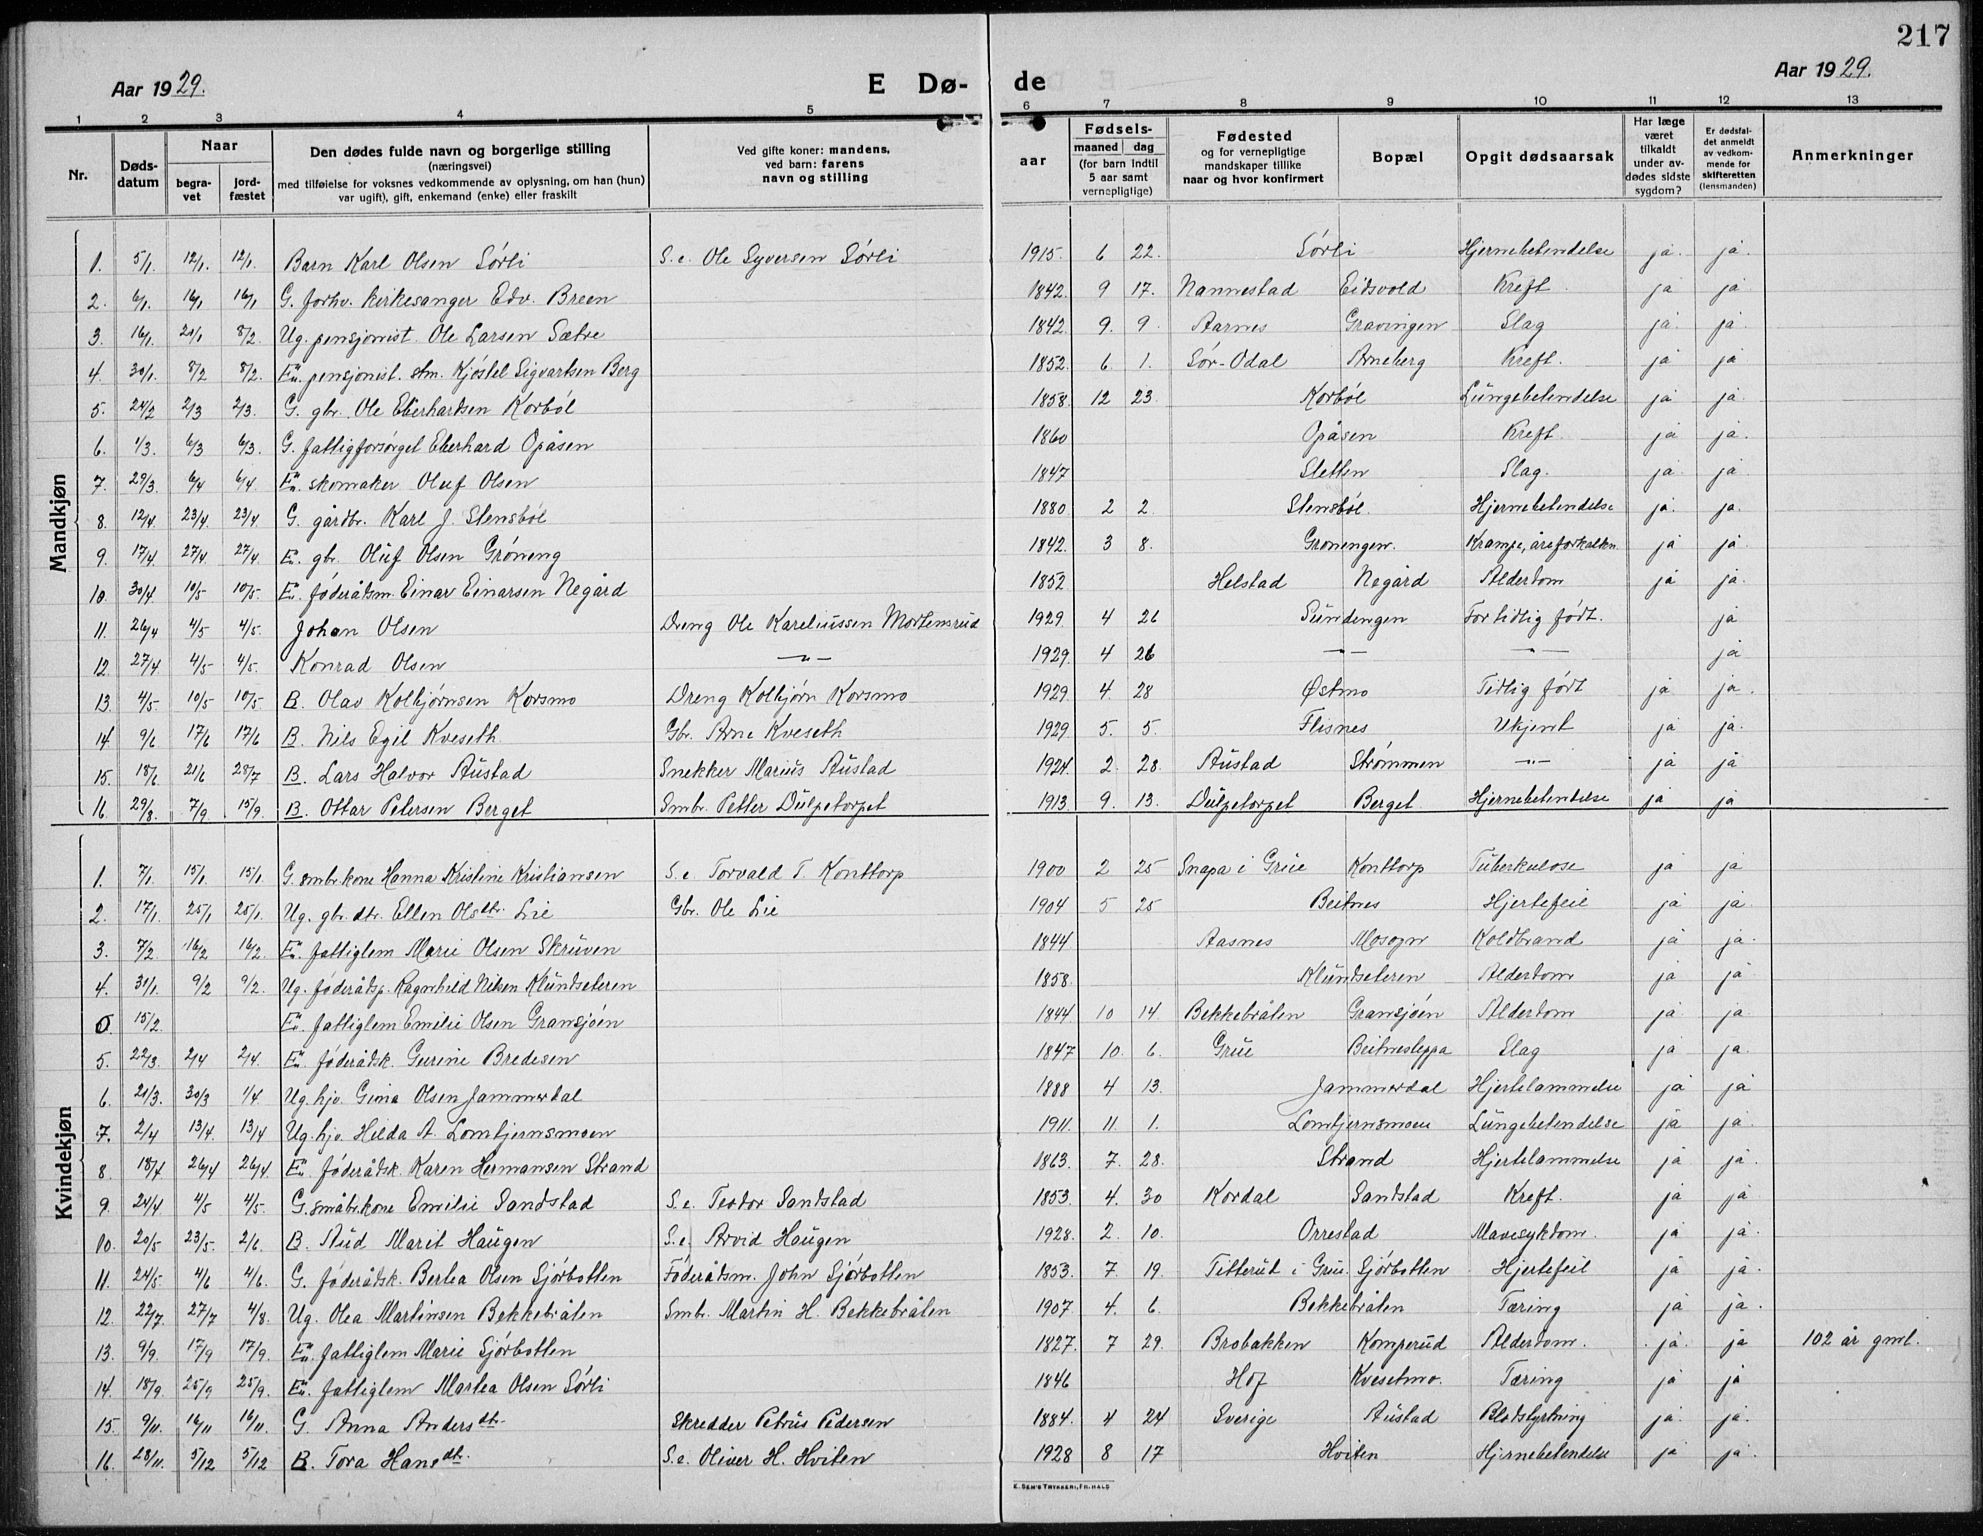 217
Aar 1929. E Dø- de Aar 1929.
1 2 3 4 5 6 7 8 9 10 11 12 13
Nr. Døds-datum Naar begra-vet jord-fæstet Den dødes fulde navn og borgerlige stilling (næringsvei) med tilføielse for voksnes vedkommende av oplysning, om han (hun) var ugift), gift, enkemand (enke) eller fraskilt Ved gifte koner: mandens, ved barn: farens navn og stilling aar Fødsels- maaned dag (for barn indtil 5 aar samt vernepligtige) Fødested og for vernepligtige mandskaper tillike naar og hvor konfirmert Bopæl Opgit dødsaarsak Har læge været tilkaldt under av-dødes sidste sygdom? Er dødsfal-det anmeldt av vedkom-mende for skifteretten (lensmanden) Anmerkninger
Mandkjøn
1. 5/1. 12/1. 12/1. Barn Karl Olsen Sørli S.e. Ole Syversen Sørli 1915. 6 22. Sørli Hjernebetendelse ja. ja.
2. 6/1. 16/1 16/1 G. forhv. kirkesanger Edv. Breen 1842. 9 17. Nannestad Eidsvold Kreft. ja ja
3. 16/1. 21/1 8/2. Ug. pensjonist Ole Larsen Sætre 1842. 9. 9. Aarnes Gravingen Slag ja ja
4. 30/1. 8/2 8/2. Em. pensjonist. stm. Kjøstel Sigvartsen Berg 1852. 6. 1. Sør-Odal Arneberg Kreft. ja ja
5. 24/2 2/3 2/3. G. gbr. Ole Eberhardsen Korbøl 1858. 12 23. Korbøl Lungebetendelse ja ja
6. 1/3. 6/3 6/3. G. fattigforsørget Eberhard Opåsen 1860 Opåsen Kreft. ja ja.
7. 29/3. 6/4 6/4. Em. skomaker Oluf Olsen 1847 Sletten Slag. ja ja
8. 12/4. 23/4. 23/4 G. gårdbr. Karl J. Stensbøl 1880 2 2. Stensbøl. Hjernebetendelse ja. ja.
9. 17/4. 27/4 27/4 E. gbr. Oluf Olsen Grøneng 1842. 3 8. Groningen. Krampe, åreforkalkn. ja ja.
10. 30/4. 10/5 10/5. Em. føderådsm. Einar Einarsen Negård 1852 Helstad Negård Alderdom ja ja.
11. 26/4 4/5 4/5. Johan Olsen Dreng Ole Kareliussen Mortensrud 1929. 4 26 Sundengen For tidlig født. ja
12. 27/4 4/5 4/5. Konrad Olsen —"— 1929. 4 26 —"— —"— ja
13. 4/5. 10/5 10/5. B. Olav Kolbjørnsen Korsmo Dreng Kolbjørn Korsmo 1929. 4. 28 Østmo Tidlig født ja ja.
14 9/6 17/6 17/6 B. Nils Egil Kveseth Gbr. Arne Kveseth 1929 5. 5. Flisnes Ukjent ja ja.
15. 18/6 21/6 28/7 B. Lars Halvor Austad Snekker Marius Austad 1924. 2. 28. Austad Strømmen —"— ja ja
16. 29/8. 7/9 15/9. B. Ottar Petersen Berget Smbr. Petter Dulpetorpet 1913. 9. 13. Dulpetorpet Berget Hjernebetendelse ja ja
Kvindekjøn
1. 7/1. 15/1. 15/1. G. smbr.kone Hanna Kristine Kristiansen S.e Torvald T. Konttorp 1900 2 25 Snapa i Grue Konttorp Tuberkulose ja ja
2. 17/1. 25/1 25/1. Ug. gbr. dtr. Ellen Olsdtr. Lie Gbr. Ole Lie 1904 5 25 Beitnes Hjertefeil ja ja.
3. 7/2. 16/2 16/2. En. fattiglem Marie Olsen Skruven 1844 Aasnes Mosogn Koldbrand ja ja.
4. 31/1. 9/2 9/2. Ug. føderådsp. Ragnhild Nilsen Klundseteren 1858. Klundseteren Alderdom ja ja
0. 15/2. En. fattiglem Emilie Olsen Gransjøen 1844. 10 14 Bekkebråten Gransjøen Alderdom ja ja.
5. 22/3. 2/4 2/4. En. føderådsk. Gurine Bredesen 1847 10. 6. Grue Beitnesleppa Slag ja ja.
6. 21/3. 30/3 1/4. Ug. hjv. Gina Olsen Jammerdal 1888 4 13. Jammerdal Hjertelammelse ja ja
7. 2/4 13/4. 13/4 Ug. hjv. Hilda A. Lomtjernsmoen 1911. 11 1. Lomtjernsmoen Lungebetendelse ja ja.
8. 18/4 26/4 26/4. En. føderådsk. Karen Hermansen Strand 1863. 7. 28. Strand Hjertelammelse ja ja.
9. 24/4 4/5 4/5. G. småbr.kone Emilie Sandstad S.e. Teodor Sandstad 1853. 4. 30 Kordal Sandstad Kreft. ja ja
10. 20/5 23/5. 2/6. B. Aud Marit Haugen S.e. Arvid Haugen 1928. 2. 10. Orrestad Mavesykdom. ja ja.
11. 24/5. 4/6 4/6. G. føderådsk. Bertea Olsen Sjørbotten Føderådsm. John Sjørbotten 1853. 7. 19. Titterud i Grue. Sjørbotten Hjertefeil ja ja.
12. 22/7 27/7 4/8. Ug. Olea Martinsen Bekkebråten Smbr. Martin H. Bekkebråten 1907. 4. 6. Bekkebråten Tæring ja ja.
13. 9/9. 17/9 17/9. En. fattiglem Marie Sjørbotten 1827. 7 29. Brobakken Komperud Alderdom. ja. ja 102 år gml.
14. 18/9. 25/9 25/9. En. fattiglem Martea Olsen Sørli 1846 Hof Kvesetmo. Tæring ja ja
15. 9/11. 16/11 16/11. G. Anna Andersdtr. Skredder Petrus Pedersen 1884. 4 24 Sverige Austad Blodstyrtning ja. ja.
16. 28/11. 5/12 5/12 B. Tora Hansdtr. S.e. Oliver H. Hviten 1928 8 17 Hviten Hjernebetendelse ja ja.
E. SEM'S TRYKKERI, FR.HALD